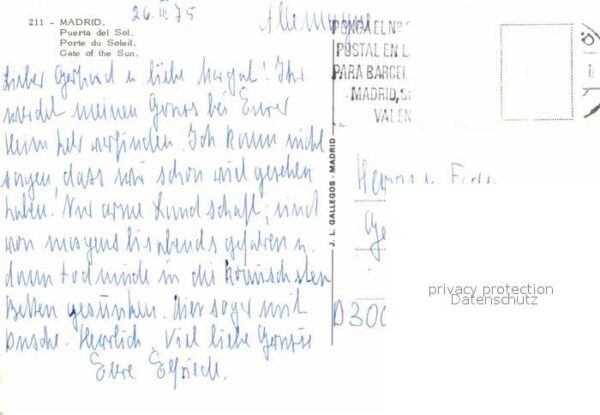 211 - MADRID.
Puerta del Sol.
Porte du Soleil.
Gate of the Sun.
26. 75
Allemagne
PONGA EL Nº
POSTAL EN L
PARA BARCEL
MADRID, S
VALEN
Lieber Gerhard u liebe Margot! Ihr
werdet meinen Gruss bei Eurer
vorfinden. Ich kann nicht
sagen, dass wir schon viel gesehen
haben. Nur arme Landschaft, sind
von morgens bis abends gefahren u.
dann todmüde in die komischsten
Betten gesunken. Hier sogar mit
Dusche. Herrlich. Viel liebe Grüsse
Eure Elfriede.
J. L. GALLEGOS - MADRID
Herrn u. Frau
Ge
D 300
privacy protection
Datenschutz